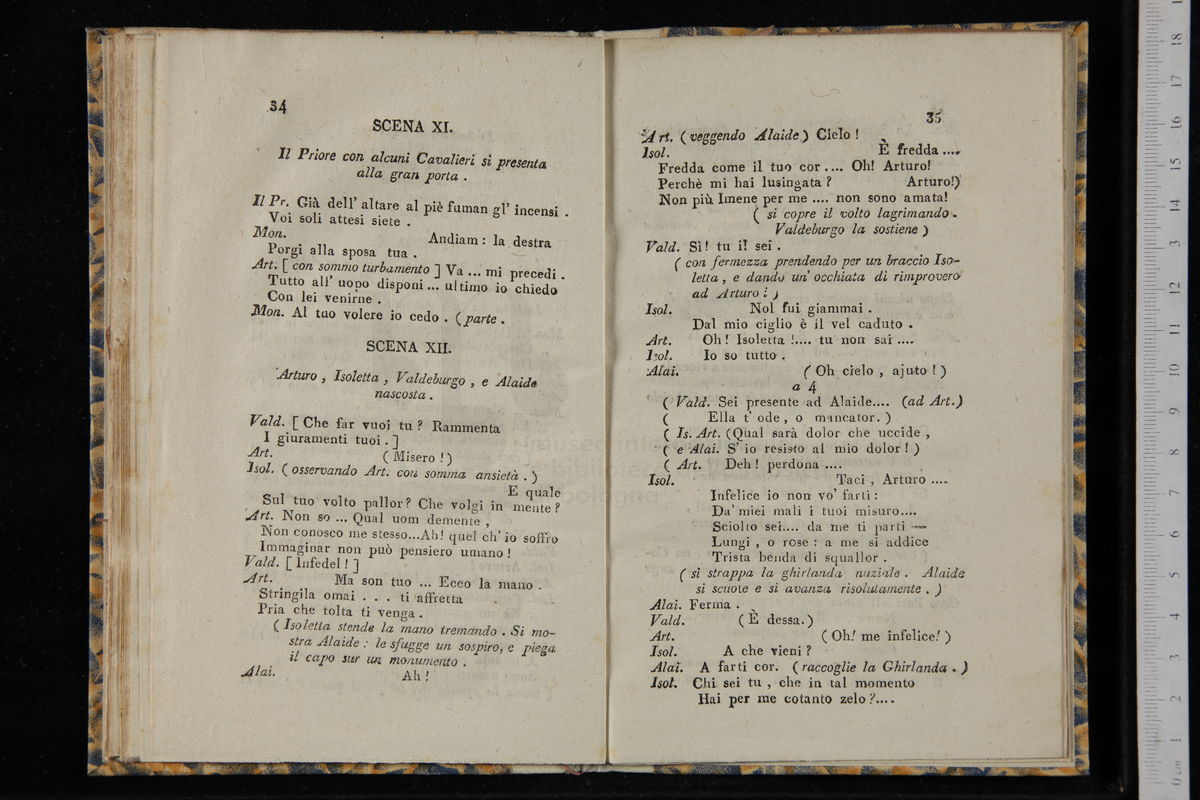 34
SCENA XI.
Il Priore con alcuni Cavalieri si presenta
alla gran porta .
Il Pr. Già dell' altare al piè fuman gl' incensi .
Voi soli attesi siete .
Mon. Andiam : la destra
Porgi alla sposa tua .
Art. [ con sommo turbamento ] Va ... mi precedi .
Tutto all' uopo disponi ... ultimo io chiedo
Con lei venirne .
Mon. Al tuo volere io cedo . ( parte .
SCENA XII.
Arturo , Isoletta , Valdeburgo , e Alaide
nascosta .
Vald. [ Che far vuoi tu ? Rammenta
I giuramenti tuoi . ]
Art. ( Misero ! )
Isol. ( osservando Art. con somma ansietà . )
E quale
Sul tuo volto pallor ? Che volgi in mente ?
Art. Non so ... Qual uom demente ,
Non conosco me stesso...Ah! quel ch' io soffro
Immaginar non può pensiero umano !
Vald. [ Infedel ! ]
Art. Ma son tuo ... Ecco la mano .
Stringila omai . . . ti affretta
Pria che tolta ti venga .
( Isoletta stende la mano tremando . Si mo-
stra Alaide : le sfugge un sospiro, e piega
il capo sur un monumento .
Alai. Ah !
35
Art. ( veggendo Alaide ) Cielo !
Isol. È fredda ....
Fredda come il tuo cor .... Oh! Arturo!
Perchè mi hai lusingata ? Arturo!)
Non più Imene per me .... non sono amata!
( si copre il volto lagrimando .
Valdeburgo la sostiene )
Vald. Sì! tu il sei .
( con fermezza prendendo per un braccio Iso-
letta , e dando un' occhiata di rimprovero
ad Arturo : )
Isol. Nol fui giammai .
Dal mio ciglio è il vel caduto .
Art. Oh! Isoletta !.... tu non sai ....
Isol. Io so tutto .
Alai. ( Oh cielo , ajuto ! )
a 4
( Vald. Sei presente ad Alaide.... (ad Art.)
( Ella t' ode , o mancator. )
( Is. Art. (Qual sarà dolor che uccide ,
( e Alai. S' io resisto al mio dolor ! )
( Art. Deh! perdona ....
Isol. Taci , Arturo ....
Infelice io non vo' farti :
Da' miei mali i tuoi misuro....
Sciolto sei.... da me ti parti —
Lungi , o rose : a me si addice
Trista benda di squallor .
( si strappa la ghirlanda nuziale . Alaide
si scuote e si avanza risolutamente . )
Alai. Ferma .
Vald. ( È dessa. )
Art. ( Oh! me infelice! )
Isol. A che vieni ?
Alai. A farti cor. ( raccoglie la Ghirlanda . )
Isol. Chi sei tu , che in tal momento
Hai per me cotanto zelo ?....